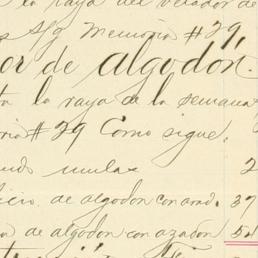 la raya del velador de
S/g Memoria #29,
or de algodón.
ta la raya de la semana
ria #29 Como sigue.
ndo mulas 2
icio de algodon con arad. 37
de algodon con azadon 54